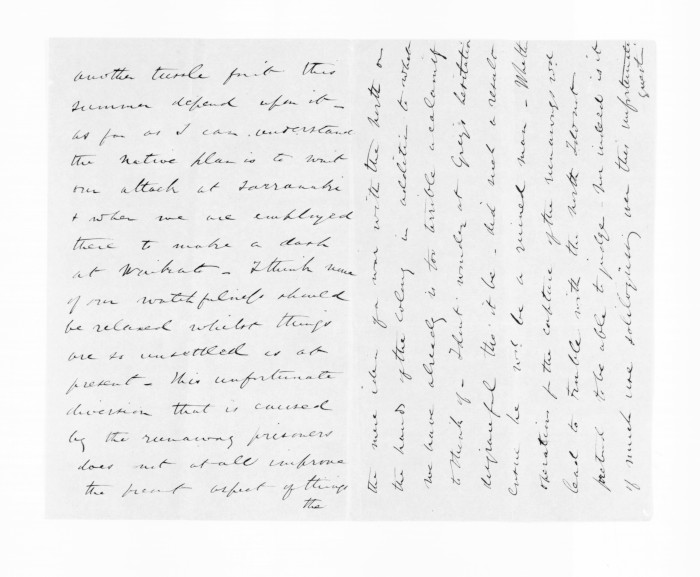 another tussle for it this
summer depend upon it –
as far as I can understand
the native plan is to wait
our attack at Tarranaki
& when we are employed
there to make a dash
at Waikato – I think none
of our watchfulness should
be relaxed whilst things
are so unsettled as at
present – This unfortunate
diversion that is caused
by the runaway prisoners
does not at all improve
the present aspect of things
the
the mere idea of a war with the north on
the hands of the colony in addition to what
we have already is too terrible a calamity
to think of – I dont wonder at Grey's hesitation
disgraceful tho' it be – did such a result
ensue he will be a ruined man – Whether
operations for the capture of the runaways wd
lead to trouble with the north I dont
pretend to be able to judge – nor indeed is it
of much use soliloquising over this unfortunate
quest